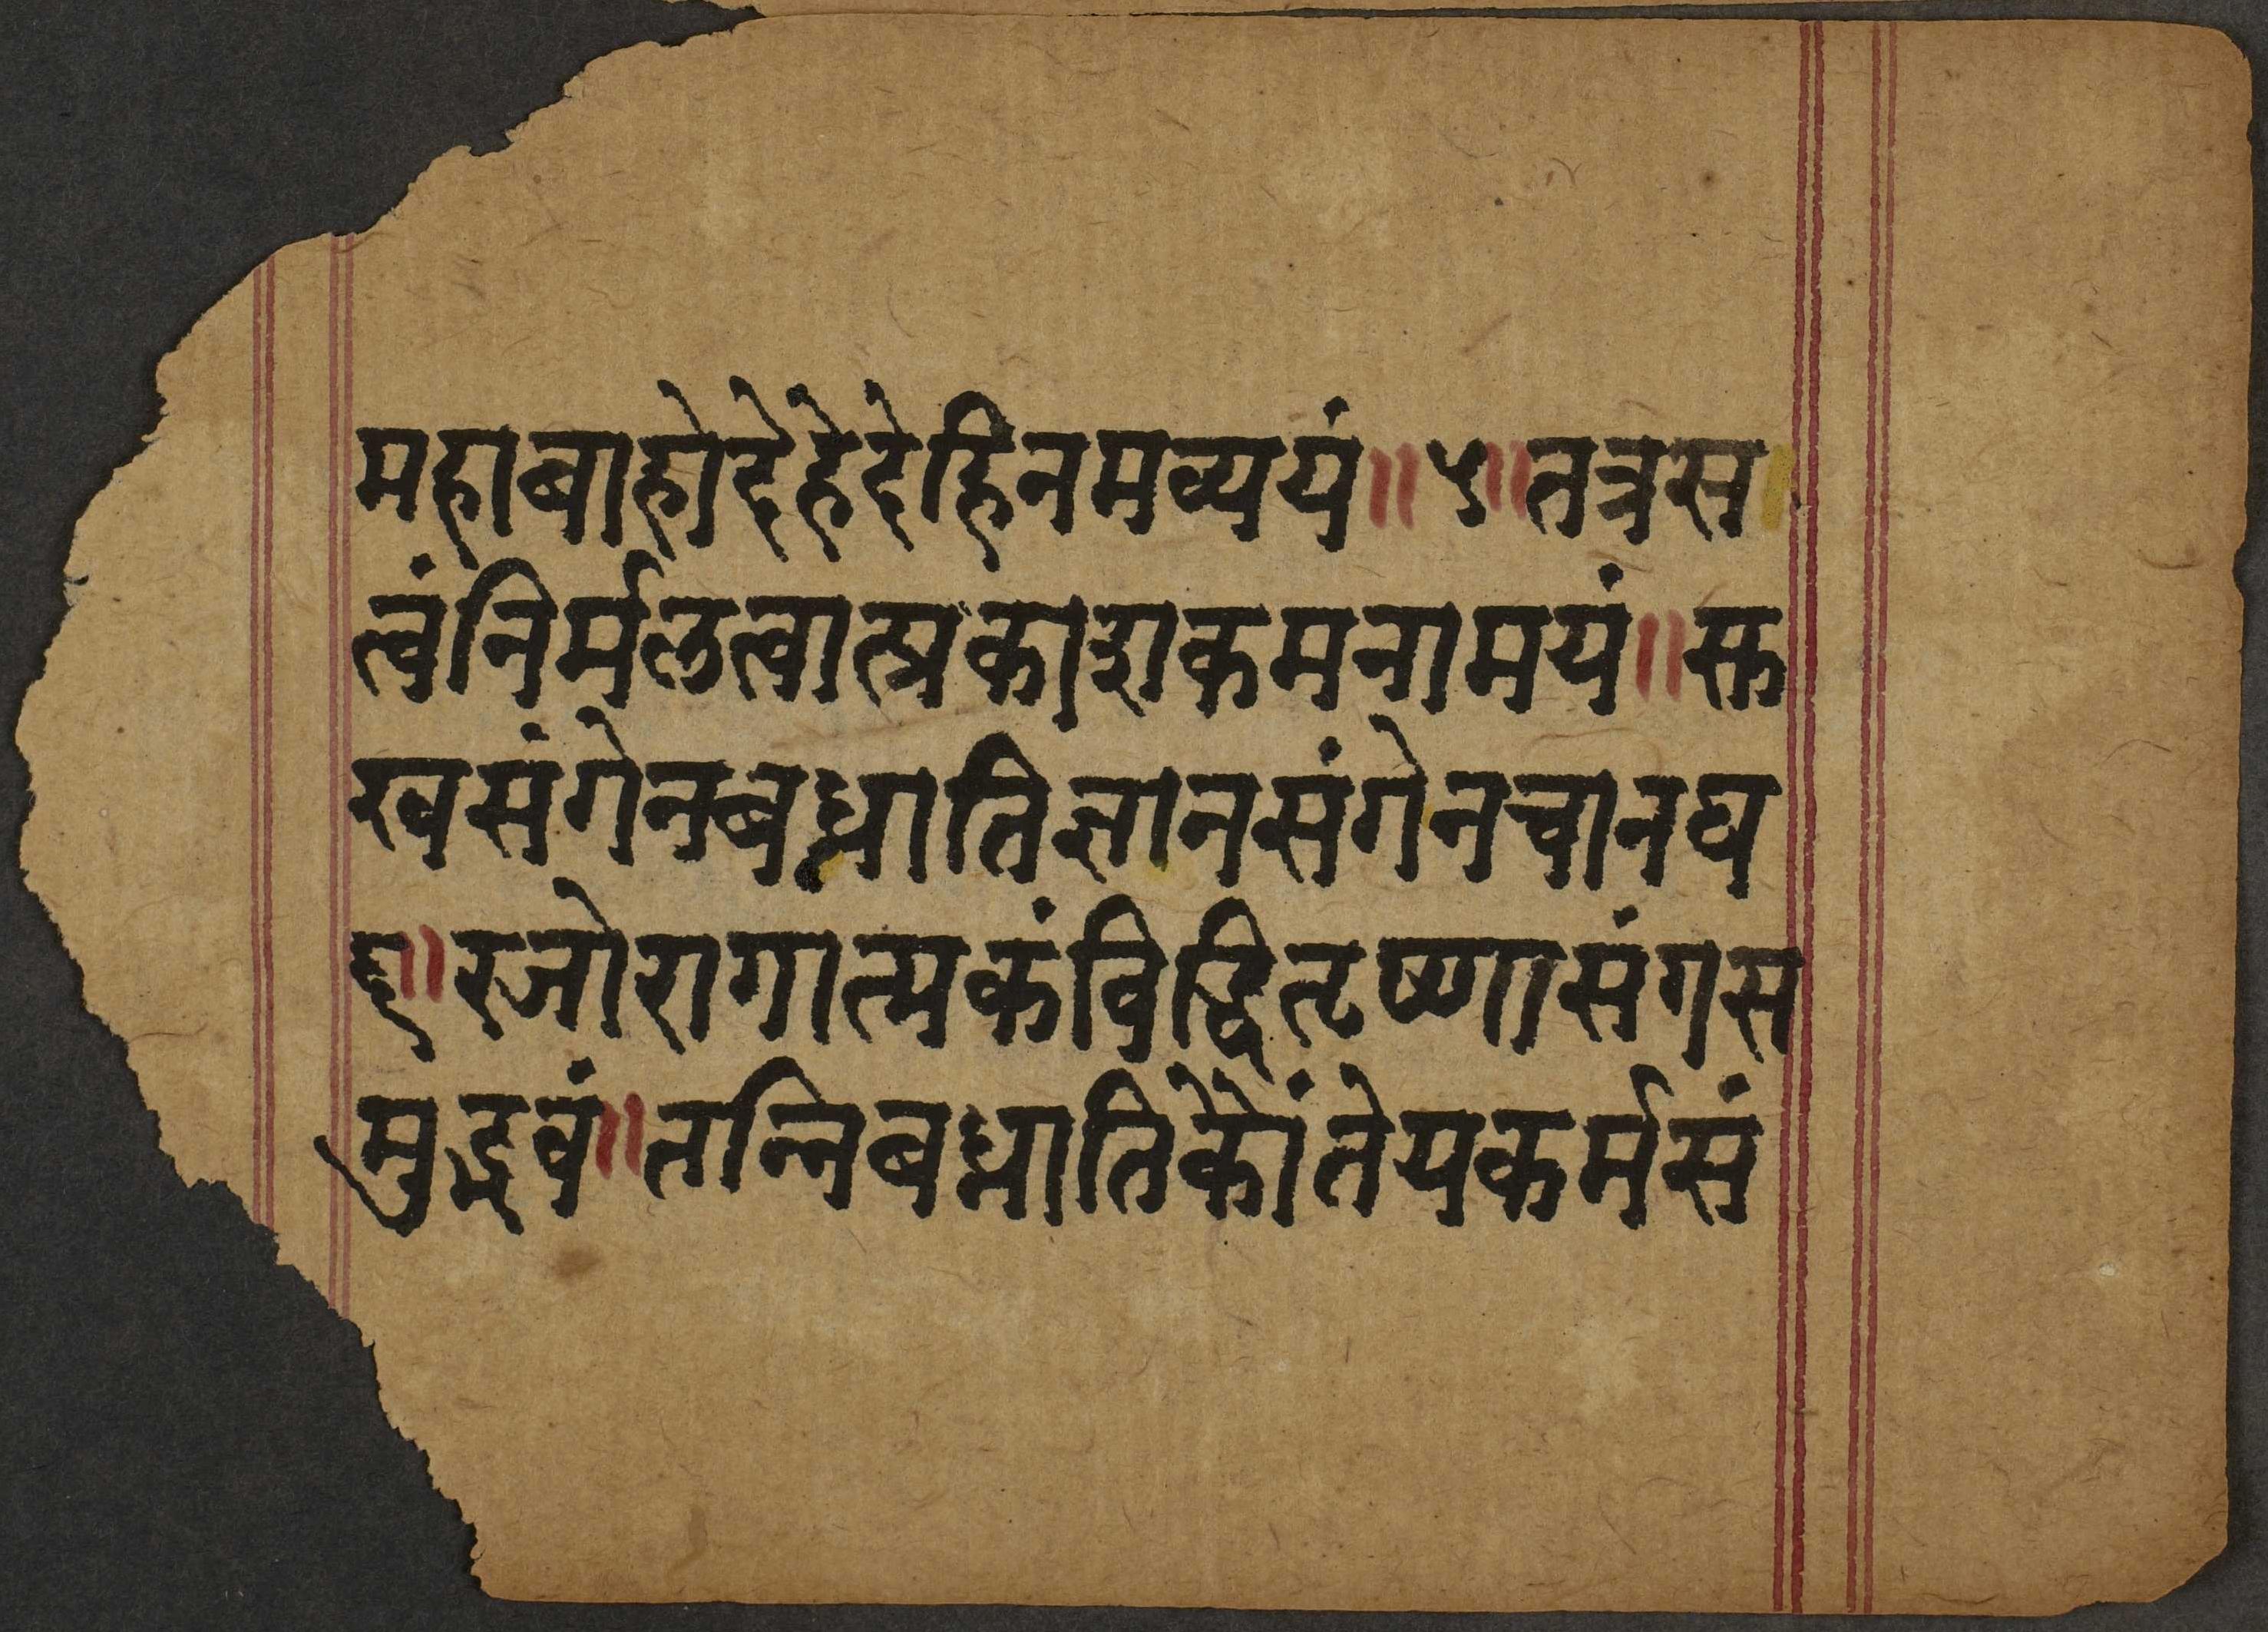 महाबाहोदेहेदेहिनमव्ययं॥५॥तत्रस
त्वंनिर्मलत्वात्प्रकाशकमनामयं॥सु
खसंगेनबध्नातिज्ञानसंगेनचानघ
६॥रजोरागात्मकंविद्धितृष्णासंगस
मुद्भवं॥तन्निबध्नातिकौंतेयकर्मसं